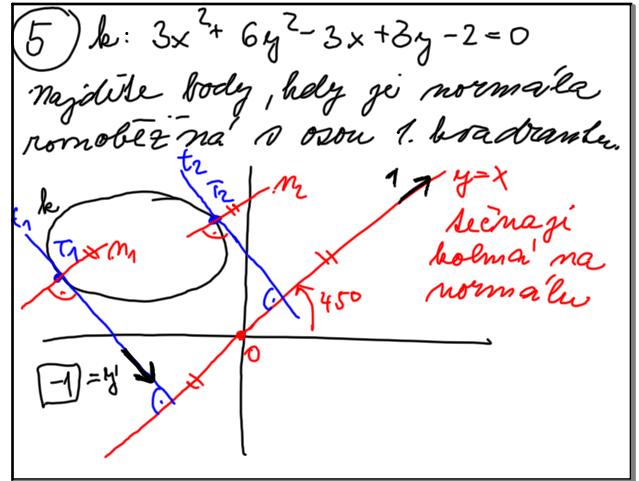 5 k: 3x²+ 6y²-3x+3y-2=0
Najděte body, kdy je normála
rovnoběžná s osou 1. kvadrantu.
t₂ T₂ n₂
1 y=x
k
t₁ T₁ n₁
tečna je
kolmá na
normálu
45°
0
-1 = y'